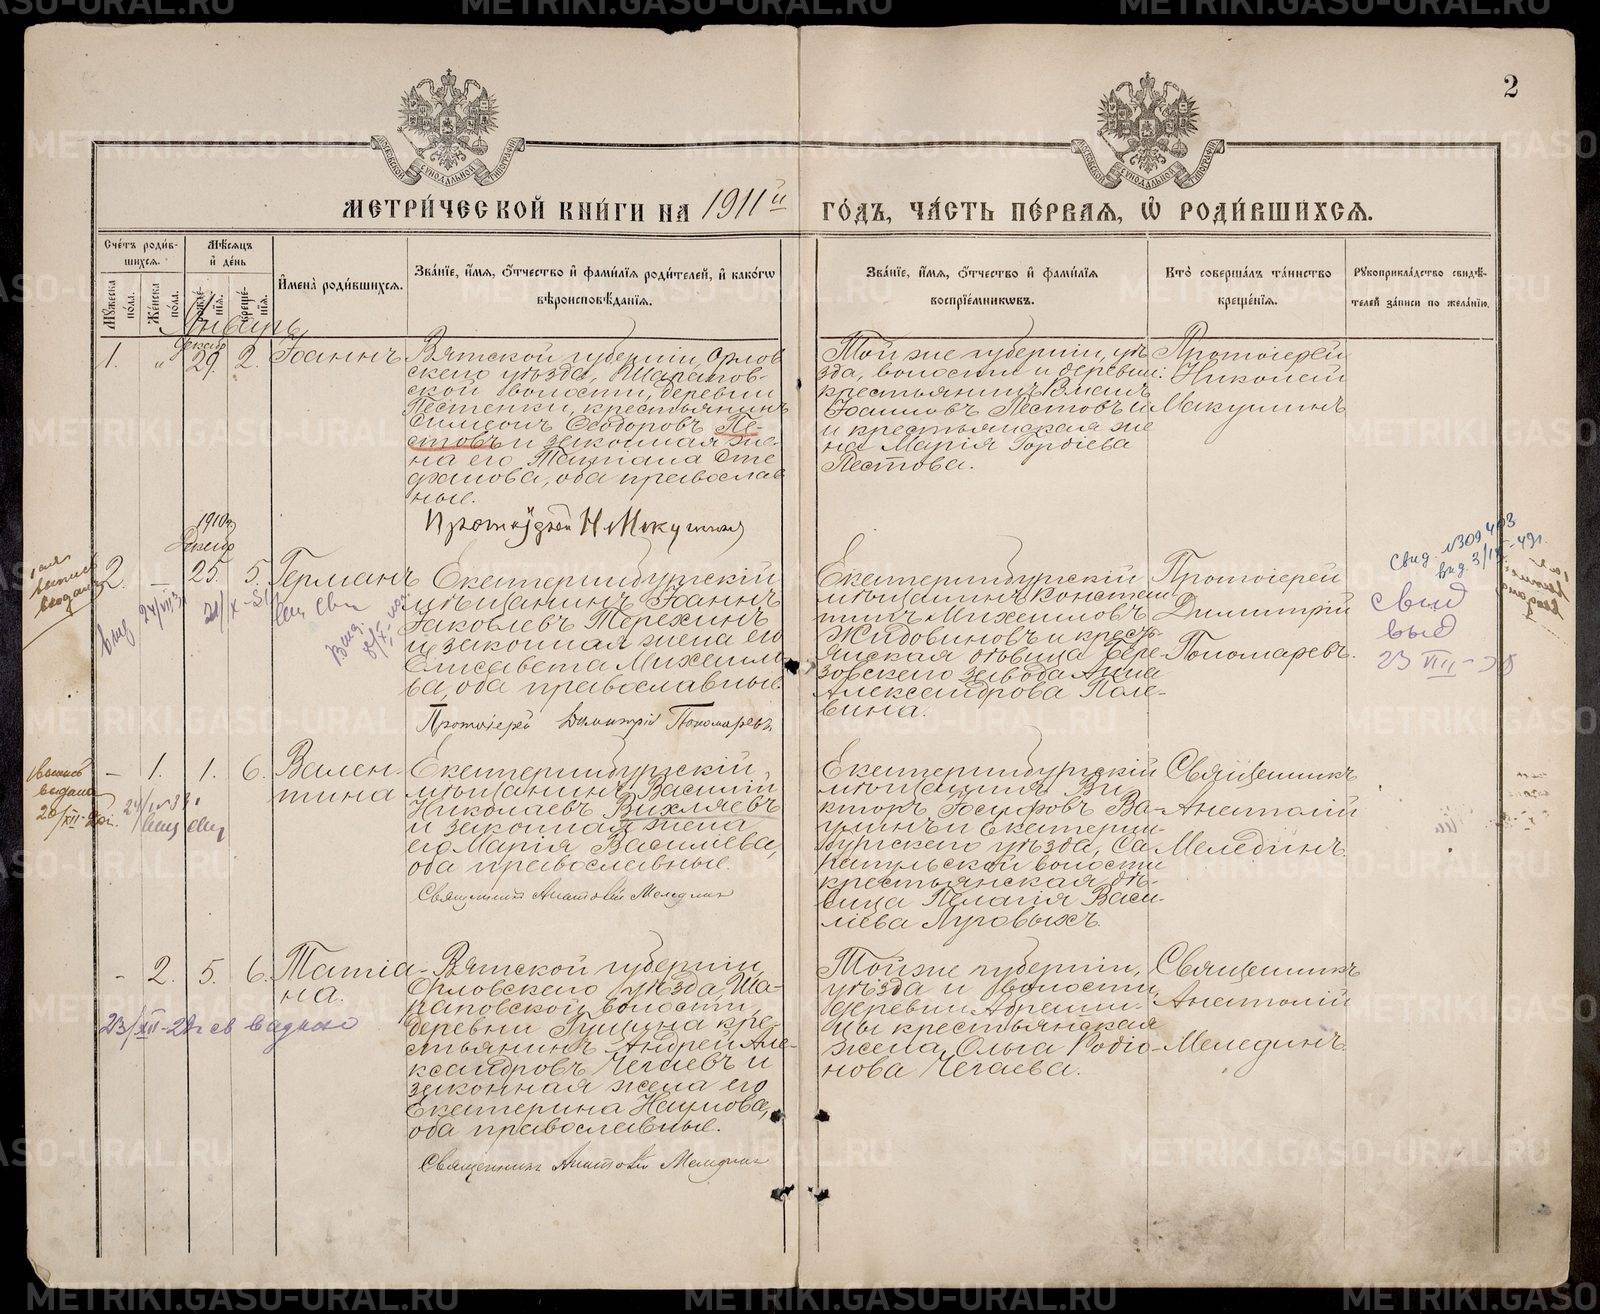 2
МЕТРИ́ЧЕСКОЙ КНИ́ГИ НА 1911й ГО́ДЪ, ЧА́СТЬ ПЕ́РВАѦ, Ѡ҆ РОДИ́ВШИХСѦ.
Сче́тъ роди́в-
шихся.
Мꙋ́жеска по́ла.
Же́нска по́ла.
Мѣ́сяцъ и҆ де́нь
рожде́-нїѧ.
креще́-нїѧ.
И҆мена̀ роди́вшихсѧ.
Зва́нїе, и҆́мѧ, о҆́тчество и҆ фами́лїѧ роди́телей, и҆ како́гѡ
вѣроисповѣ́данїѧ.
Зва́нїе, и҆́мѧ, о҆́тчество и҆ фами́лїѧ
воспрїе́мникѡвъ.
Кто̀ соверша́лъ та́инство
креще́нїѧ.
Рꙋкоприкла́дство свидѣ́-
телей за́писи по жела́нїю.
Январь
1. „ Декабр 29. 2. Іоаннъ
Вятской губерніи, Орлов
скаго уѣзда, Шарапов-
ской волости, деревни
Пестенки, крестьянинъ
Симеонъ Ѳеодоровъ Пе-
стовъ и законная же-
на его Татіана Сте
фанова, оба православ
ные.
Протоіерей Н Макушинъ
Той же губерніи, уѣ
зда, волости и деревни:
крестьянинъ
Іоанновъ Пестовъ и
и крестьянская же
на Марія Гордіева
Пестова.
Протоіерей
Николай
Макушинъ
1910 г.
Декабр
2. — 25. 5. Германъ
Екатеринбургскій
мѣщанинъ Іоаннъ
Іаковлевъ Терехинъ
и законная жена его
Елисавета Михаило
ва, оба православные.
Протоіерей Димитрій Пономаревъ
Екатеринбургскій
мѣщанинъ Констан
тинъ Михаиловъ
Жидовиновъ и кресть-
янская дѣвица Бере-
зовскаго завода Анна
Александрова Поле-
вина.
Протоіерей
Димитрій
Пономаревъ.
Свид. №309403
выд. 3/IX-49г.
свид
выд
23 VII-
выпись
выдана
— 1. 1. 6. Вален-
тина
Екатеринбургскій
мѣщанинъ Василій
Николаевъ Вихляевъ
и законная жена
его Марія Василіева,
оба православные.
Священникъ Анатолій Меледин
Екатеринбургскій
мѣщанинъ Ви
кторъ Іосифовъ Ва-
улинъ и Екатерин-
бургскаго уѣзда,
волости
крестьянская дѣ-
вица Пелагія Васи-
ліева Луговыхъ.
Священникъ
Анатолій
Меледин.
выпись
выдана
- 2. 5. 6. Татіа-
на.
Вятской губерніи,
Орловскаго уѣзда, Ша-
раповской волости,
деревни Гушина кре-
стьянинъ Андрей Але-
ксандровъ Чегаевъ и
законная жена его
Екатерина Наумова,
оба православные.
Священникъ Анатолій Меледин
Той же губерніи,
уѣзда и волости
деревни
крестьянская
жена Ольга Родіо-
нова Чегаева.
Священникъ
Анатолій
Меледин.
23/XII-
METRIKI.GASO-URAL.RU